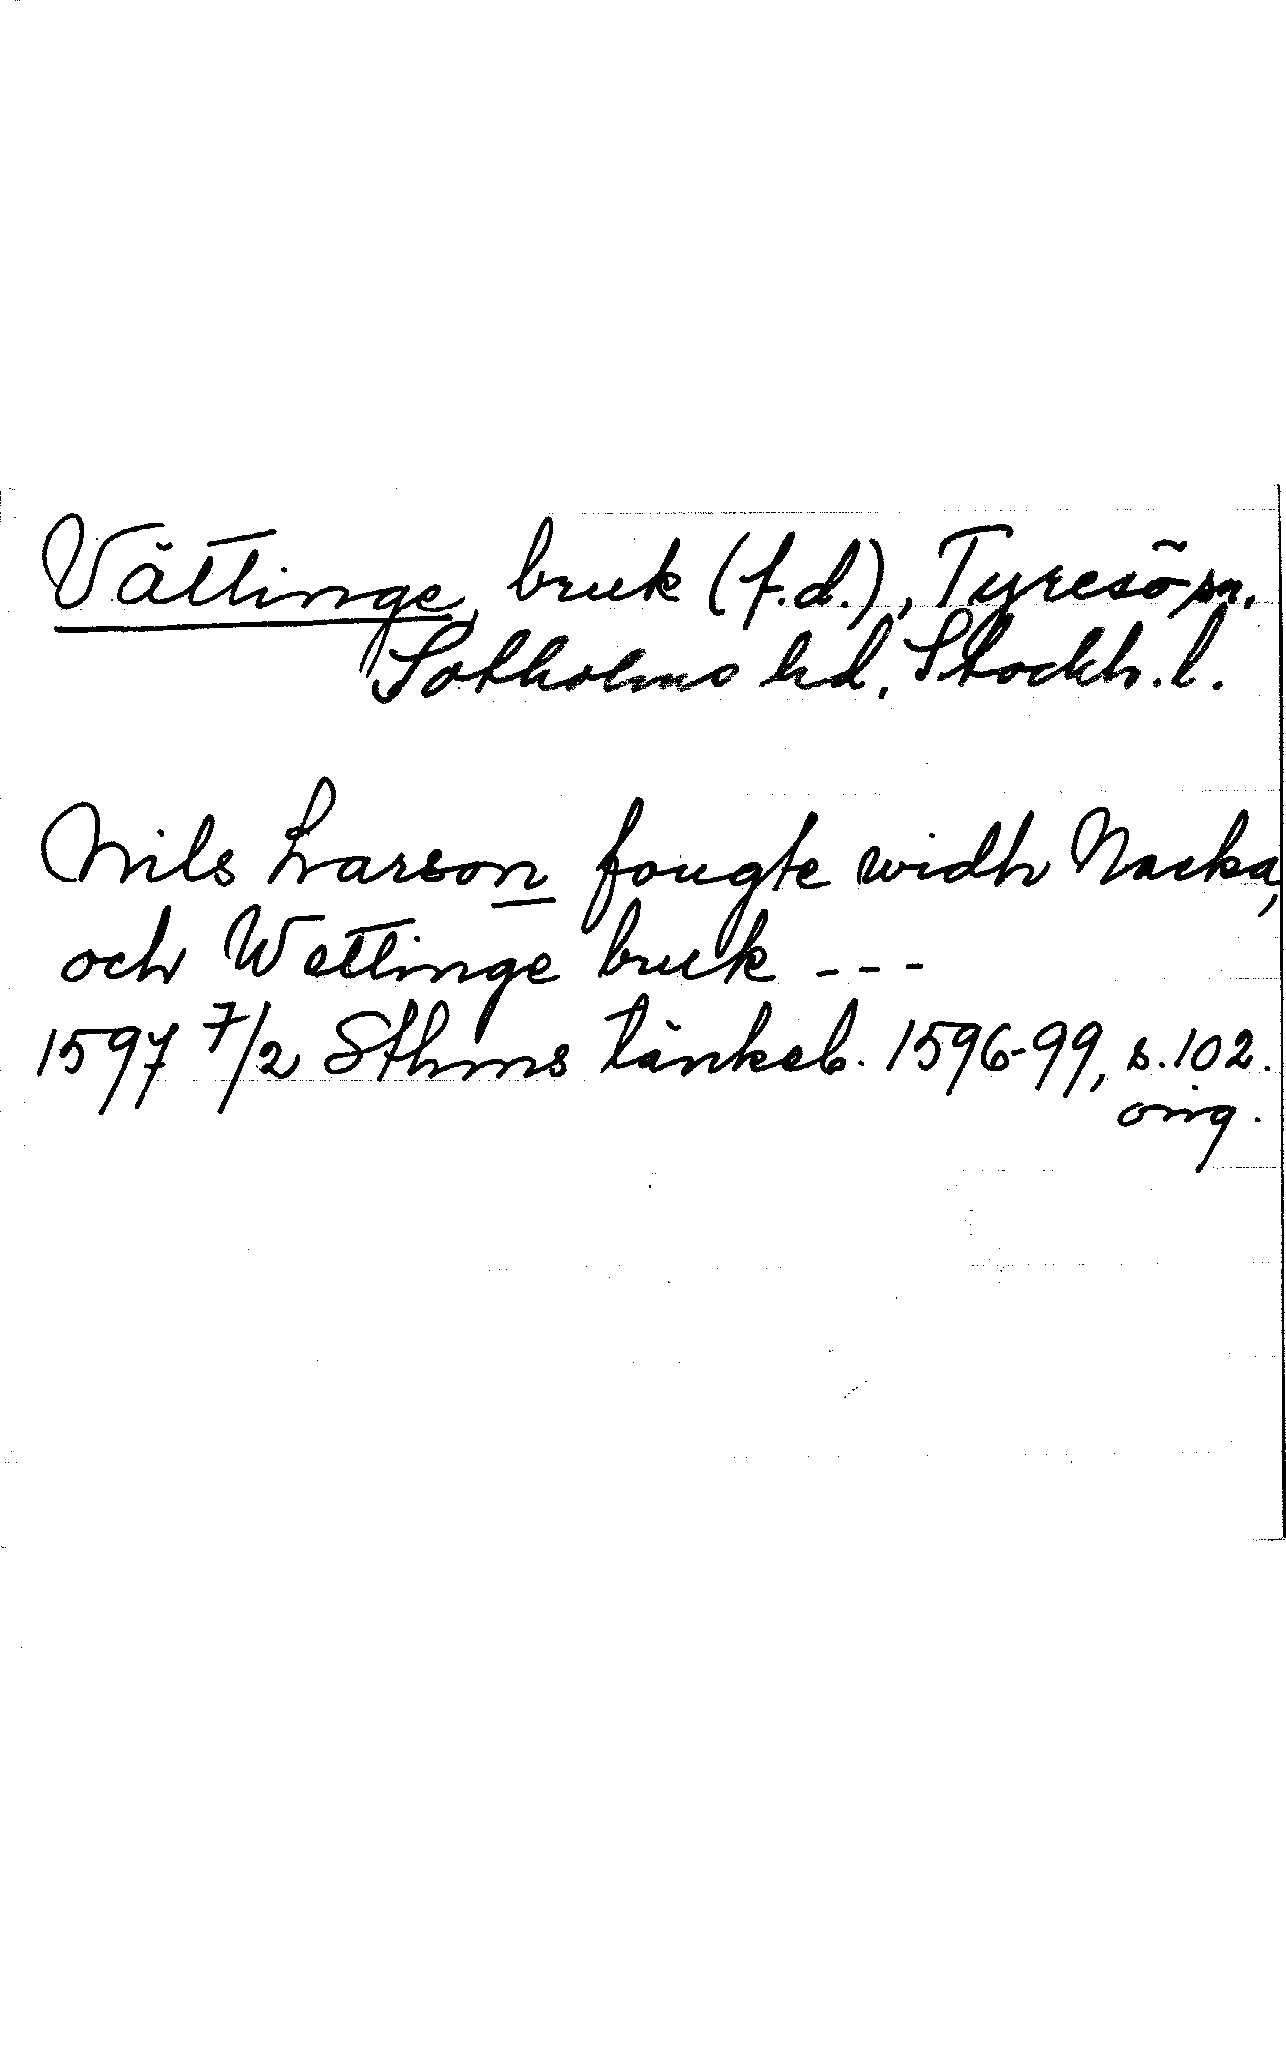 Vättinge, bruk (f.d.), Tyresö sn.
Sotholms hd, Stockh. l.
Nils Larson fougte widh Nacka,
och Wettinge bruk ---
1597 7/2 Sthms tänkeb. 1596-99, s. 102.
orig.